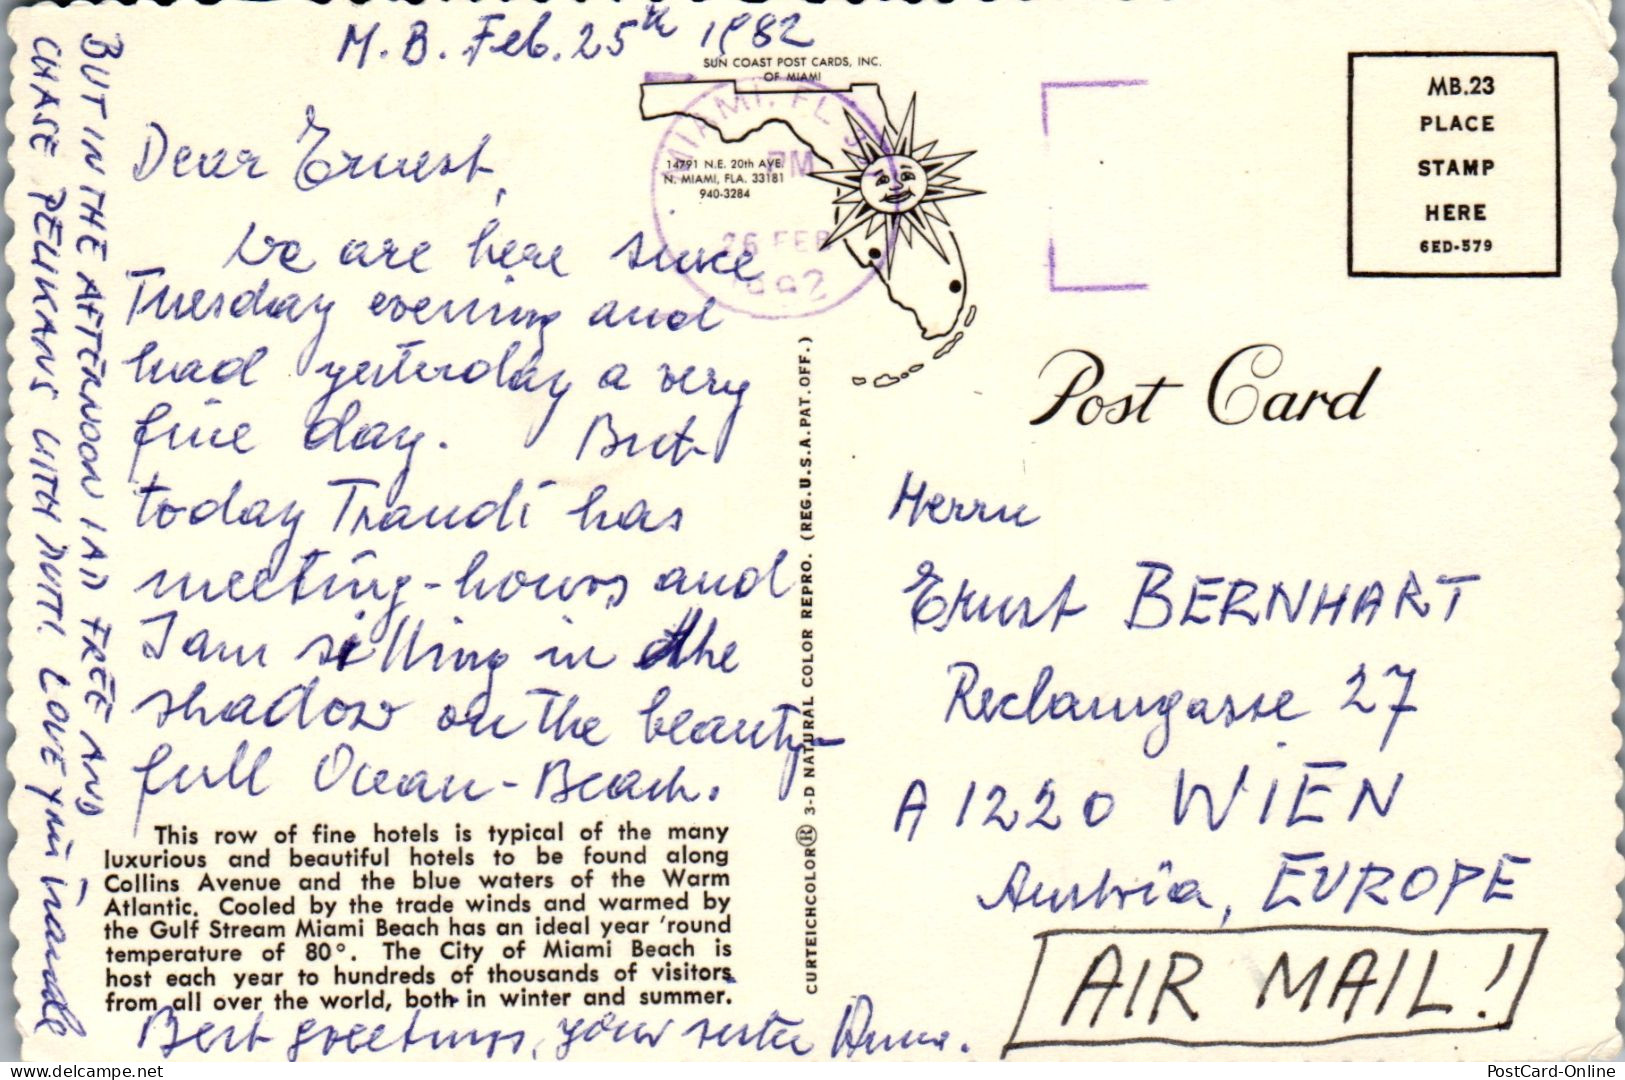 M. B. Feb. 25th 1982
SUN COAST POST CARDS, INC.
OF MIAMI
14791 N.E. 20th AVE.
N. MIAMI, FLA. 33181
940-3284
MIAMI, FL
PM
26 FEB
MB.23
PLACE
STAMP
HERE
6ED-579
Dear Ernest,
We are here since
Tuesday evening and
had yesterday a very
fine day. But
today Traudi has
meeting-hours and
I am sitting in the
shadow on the beauty-
full Ocean-Beach.
This row of fine hotels is typical of the many
luxurious and beautiful hotels to be found along
Collins Avenue and the blue waters of the Warm
Atlantic. Cooled by the trade winds and warmed by
the Gulf Stream Miami Beach has an ideal year 'round
temperature of 80°. The City of Miami Beach is
host each year to hundreds of thousands of visitors
from all over the world, both in winter and summer.
Best greetings, your sister Anna.
BUT IN THE AFTERNOON I AM FREE AND
CHASE PELIKANS WITH MUTTI. LOVE your Traudi
CURTEICHCOLOR® 3-D NATURAL COLOR REPRO. (REG. U.S.A. PAT. OFF.)
Post Card
Herrn
Ernst BERNHART
Reclamgasse 27
A 1220 WIEN
Austria, EUROPE
AIR MAIL!
PostCard-Online